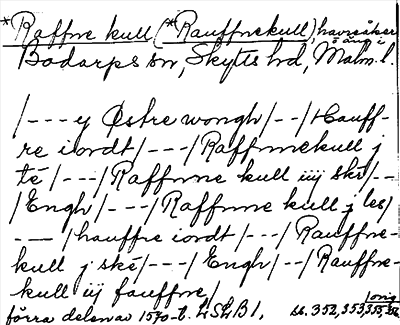 *Raffne kull (*Rauffnekull), havreåker
Bodarps sn, Skytts hd, Malm. l.
/---y Østre wongh/--/Hauff-
re iordt/---/Raffnnekull j
té/---/Raffnne kull iiij ske/--
/Engh/---/Raffnne kull j les/
---/hauffre iordt/---/Rauffne-
kull j ské/---/Engh/--/Rauffne-
kull iij fauffne/
förra delen av 1570-t. LSÆB1, ss. 352, 353,